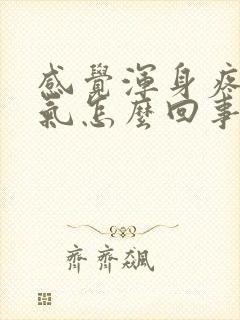 感覺渾身疼
氣怎麼回事
齊齊飆